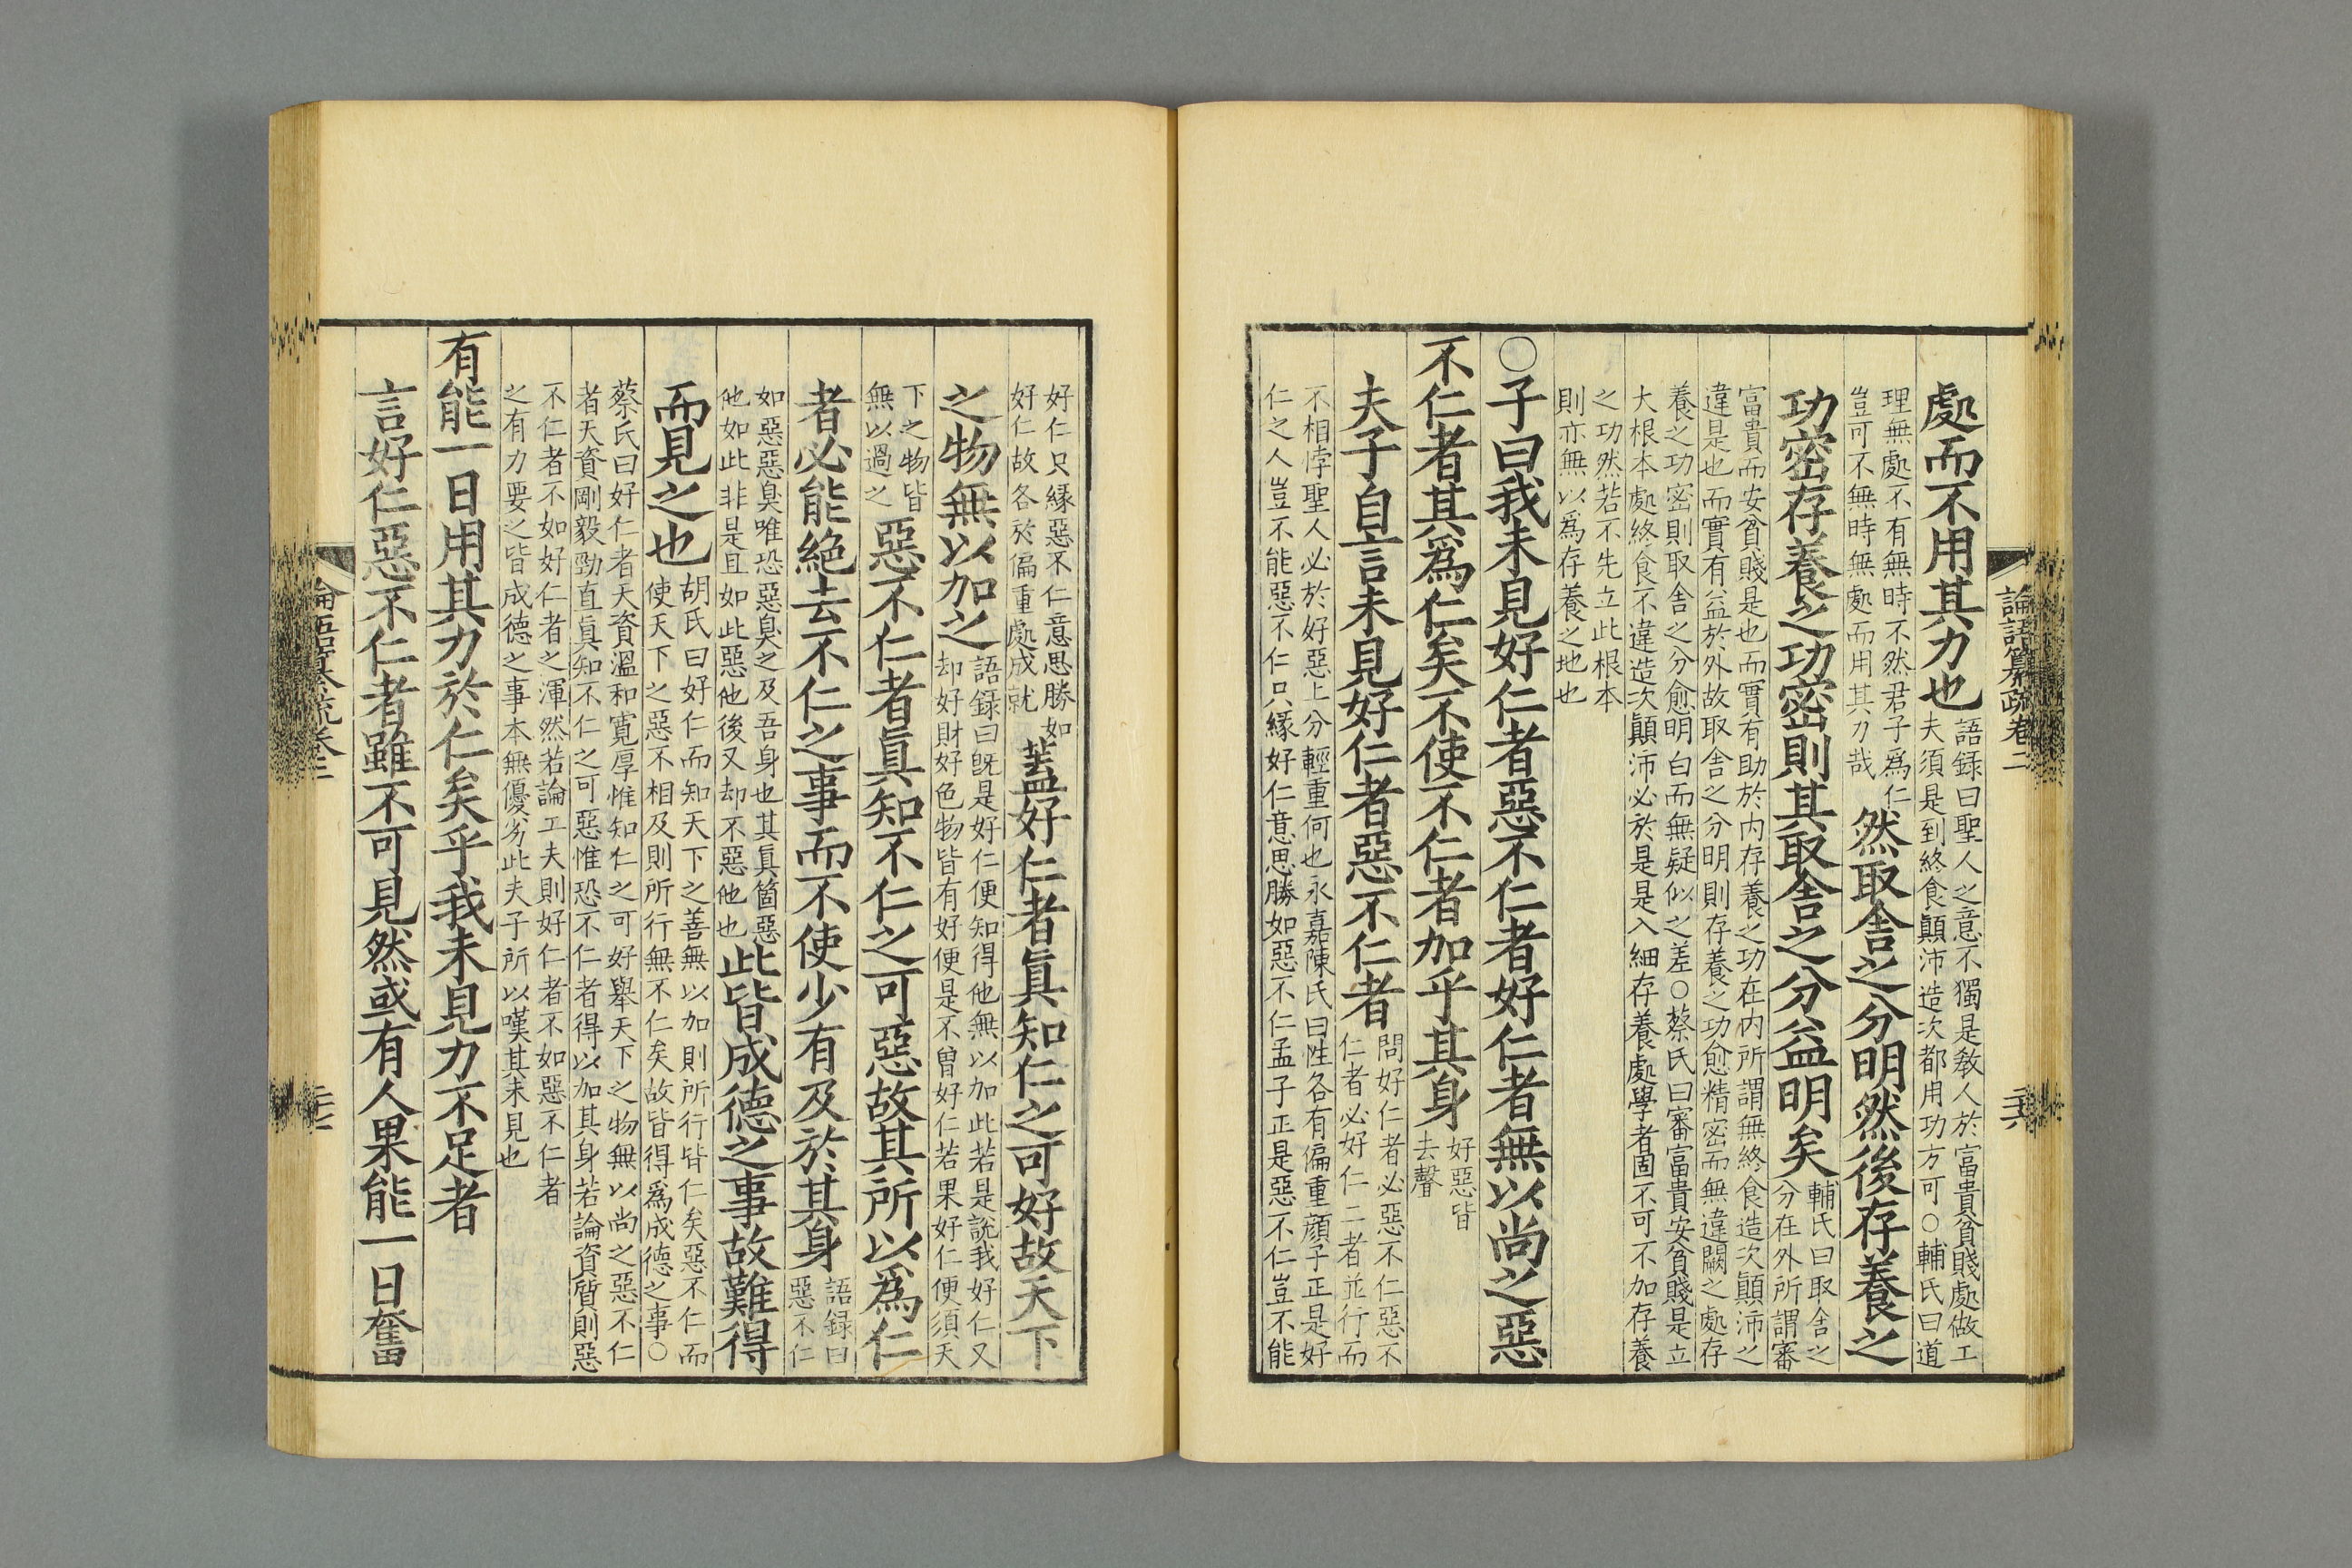 論語纂疏卷二
處而不用其力也
語録曰聖人之意不獨是教人於富貴貧賤處做工
夫須是到終食顚沛造次都用功方可○輔氏曰道
理無處不有無時不然君子爲仁
豈可不無時無處而用其力哉
然取舎之分明然後存養之
功密存養之功密則其取舎之分益明矣
輔氏曰取舎之
分在外所謂審
富貴而安貧賤是也而實有助於内存養之功在内所謂無終食造次顚沛之
違是也而實有益於外故取舎之分明則存養之功愈精密而無違闕之處存
養之功密則取舎之分愈明白而無疑似之差○蔡氏曰審富貴安貧賤是立
大根本處終食不違造次顚沛必於是是入細存養處學者固不可不加存養
之功然若不先立此根本
則亦無以爲存養之地也
○子曰我未見好仁者惡不仁者好仁者無以尚之惡
不仁者其爲仁矣不使不仁者加乎其身
好惡皆
去聲
夫子自言未見好仁者惡不仁者
問好仁者必惡不仁惡不
仁者必好仁二者並行而
不相悖聖人必於好惡上分輕重何也永嘉陳氏曰性各有偏重顔子正是好
仁之人豈不能惡不仁只緣好仁意思勝如惡不仁孟子正是惡不仁豈不能
好仁只緣惡不仁意思勝如
好仁故各於偏重處成就
蓋好仁者眞知仁之可好故天下
之物無以加之
語録曰旣是好仁便知得他無以加此若是說我好仁又
却好財好色物皆有好便是不曾好仁若果好仁便須天
下之物皆
無以過之
惡不仁者眞知不仁之可惡故其所以爲仁
者必能絶去不仁之事而不使少有及於其身
語録曰
惡不仁
如惡惡臭唯恐惡臭之及吾身也其眞箇惡
他如此非是且如此惡他後又却不惡他也
此皆成德之事故難得
而見之也
胡氏曰好仁而知天下之善無以加則所行皆仁矣惡不仁而
使天下之惡不相及則所行無不仁矣故皆得爲成德之事○
蔡氏曰好仁者天資溫和寛厚惟知仁之可好舉天下之物無以尚之惡不仁
者天資剛毅勁直眞知不仁之可惡惟恐不仁者得以加其身若論資質則惡
不仁者不如好仁者之渾然若論工夫則好仁者不如惡不仁者
之有力要之皆成德之事本無優劣此夫子所以嘆其未見也
有能一日用其力於仁矣乎我未見力不足者
言好仁惡不仁者雖不可見然或有人果能一日奮
論語纂疏卷二